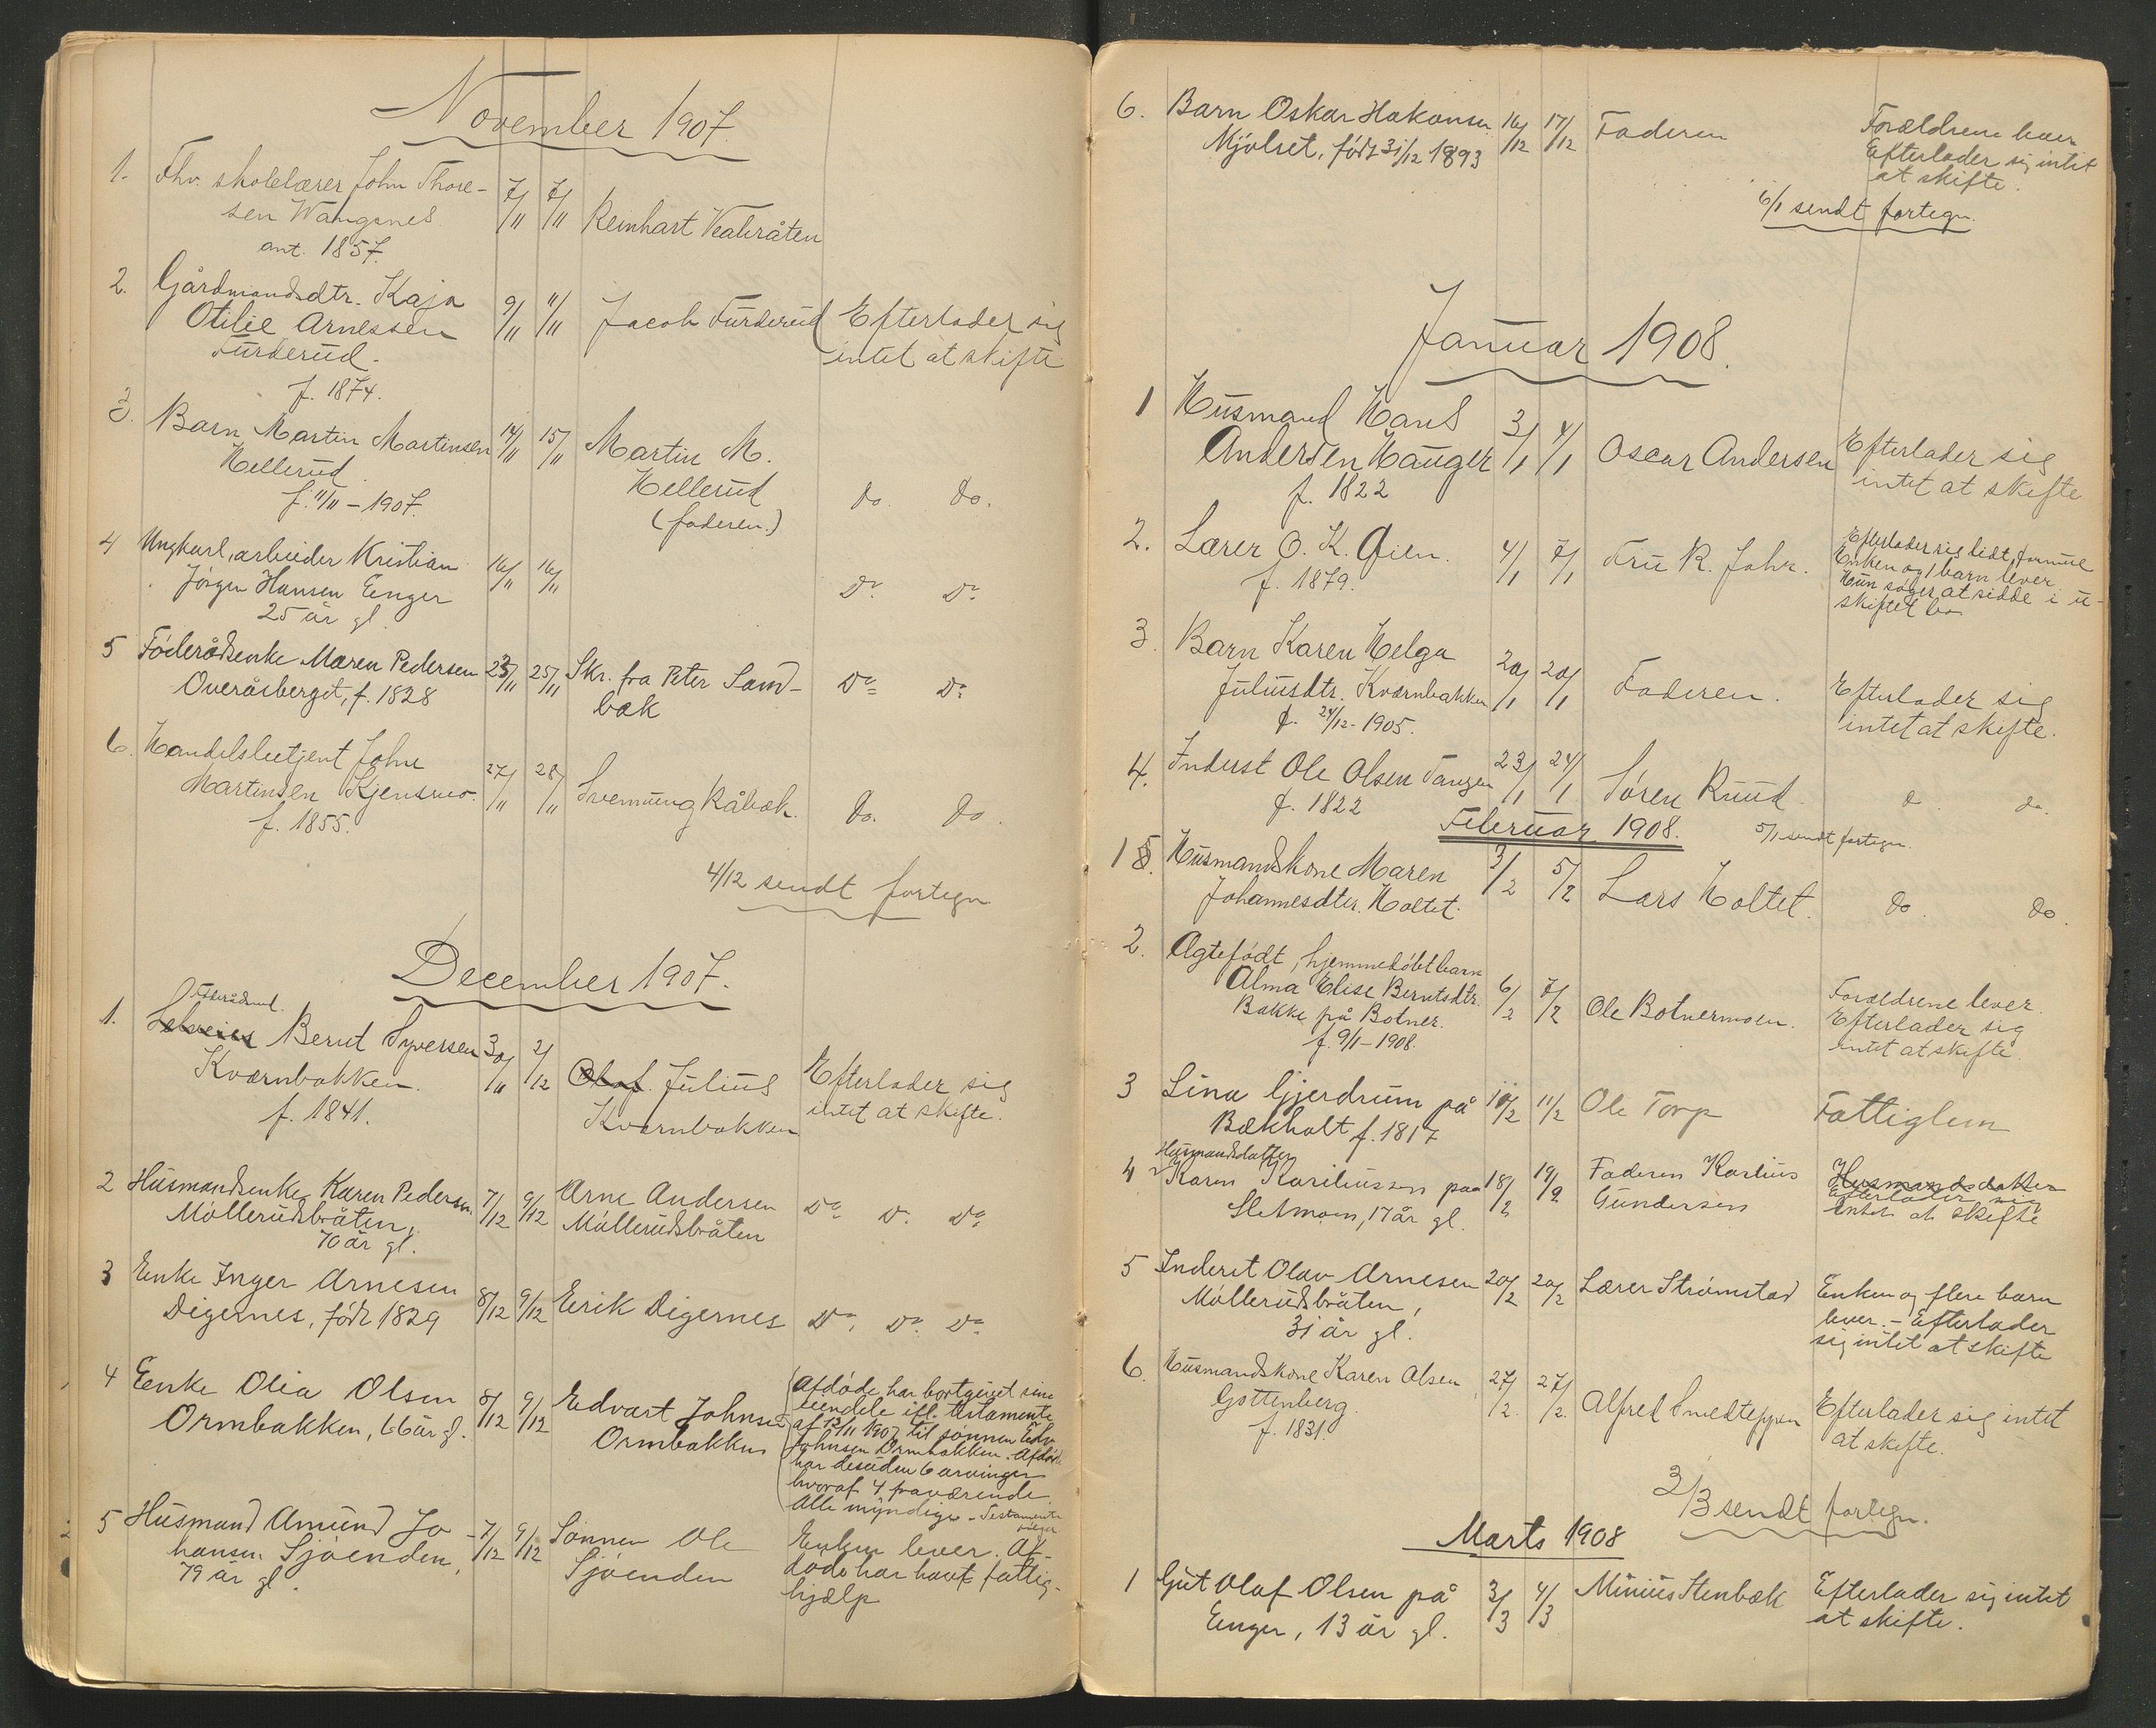 November 1907.
1. Fhv. skolelærer John Thore- 7/11 7/11
sen Wangsnes Reinhart
ant. 1857.
2. Gårdmandsdtr. Kaja 9/11 11/11 Jacob Furderud Efterlader sig
Otilie Arnessen intet at skifte
Furderud.
f. 1874.
3. Barn Martin Martinsen 14/11 15/11 Martin M.
Hellerud Hellerud do. do.
f. 11/11 - 1907. (faderen.)
4 Ungkarl, arbeider Kristian 16/11 16/11 Do Do
Jörgen Hansen Enger
25 år gl.
5 Föderådsenke Maren Pedersen 23/11 25/11 Skr. fra Peter Sand- Do Do
Overåsberget, f. 1828 bæk
6. Handelsbetjent John 27/11 28/11 Svennung Råbæk. do. do.
Martinsen Kjensmo.
f. 1855.
4/12 sendt fortegn
December 1907.
Föderådsmd.
1. Selveier Bernt Syversen 30/11 2/12 Olaf. Julius Efterlader sig
Kværnbakken. Kværnbakken intet at skifte.
f. 1841.
2 Husmandsenke Karen Pedersen 7/12 9/12 Arne Andersen Do Do Do
Möllerudsbråten, Möllerudsbråten
70 år gl.
3 Enke Inger Arnesen 8/12 9/12 Erik Digernes Do Do Do
Digernes, född 1829
4 Enke Olia Olsen 8/12 9/12 Edvart Johnsen Afdöde har bortgivet sine
Ormbakken, 66 år gl. Ormbakken eiendele ifl. testamente
af 13/11 1907 til sönnen Edv.
Johnsen Ormbakken. Afdöde
har desuden 6 arvinger
hvoraf 4 fraværende.
Alle myndige - Testamente
5 Husmand Amund Jo- 7/12 9/12 Sönnen Ole Enken lever. Af-
hansen Sjöenden, Sjöenden döde har havt fattig-
79 år gl. hjælp
6. Barn Oskar Hakonsen 16/12 17/12 Faderen Forældrene lever
Mjölset, född 31/12 1893 Efterlader sig intet
at skifte.
6/1 sendt fortegn.
Januar 1908.
1 Husmand Hans 3/1 4/1 Oscar Andersen Efterlader sig
Andersen Hauger intet at skifte
f. 1822
2. Lærer O. K. Øien. 4/1 7/1 Fru R. Johr. Efterlader sig lidt formue
f. 1879. Enken og 1 barn lever
Hun söger at sidde i u-
skiftet bo
3. Barn Karen Helga 20/1 20/1 Faderen. Efterlader sig
Juliusdtr. Kværnbakken intet at skifte.
f. 24/12 - 1905.
4. Inderst Ole Olsen Tangen 23/1 24/1 Sören Ruud. do. do.
f. 1822
Februar 1908. 5/1 sendt fortegn.
1 5. Husmandskone Maren 3/2 5/2 Lars Holtet. do. do.
Johannesdter. Holtet.
2. Ægtefödt, hjemmedöbt barn
Alma Elise Berntsdtr. 6/2 7/2 Ole Botnermoen. Forældrene lever.
Bakke på Botner. Efterlader sig
f. 9/1 - 1908. intet at skifte.
3 Lina Gjerdrum på 10/2 11/2 Ole Torp Fattiglem
Bækholt f. 1817
Husmandsdatter
4 Karen Kariliussen paa 18/2 19/2 Faderen Karlius Husmandsdatter
Sletmoen, 17 år gl. Gundersen Efterlader sig
intet at skifte
5 Inderst Olav Arnesen 20/2 20/2 Lærer Strömstad Enken og flere barn
Möllerudsbråten, lever. - Efterlader
31 år gl. sig intet at skifte
6. Husmandskone Karen Olsen 27/2 27/2. Alfred Smedteppen Efterlader sig intet
Gottenberg. at skifte.
f. 1831.
3/3 sendt fortegn.
Marts 1908
1 Gut Olaf Olsen på 3/3 4/3 Minius Stenbæk Efterlader sig intet
Enger, 13 år gl. at skifte.